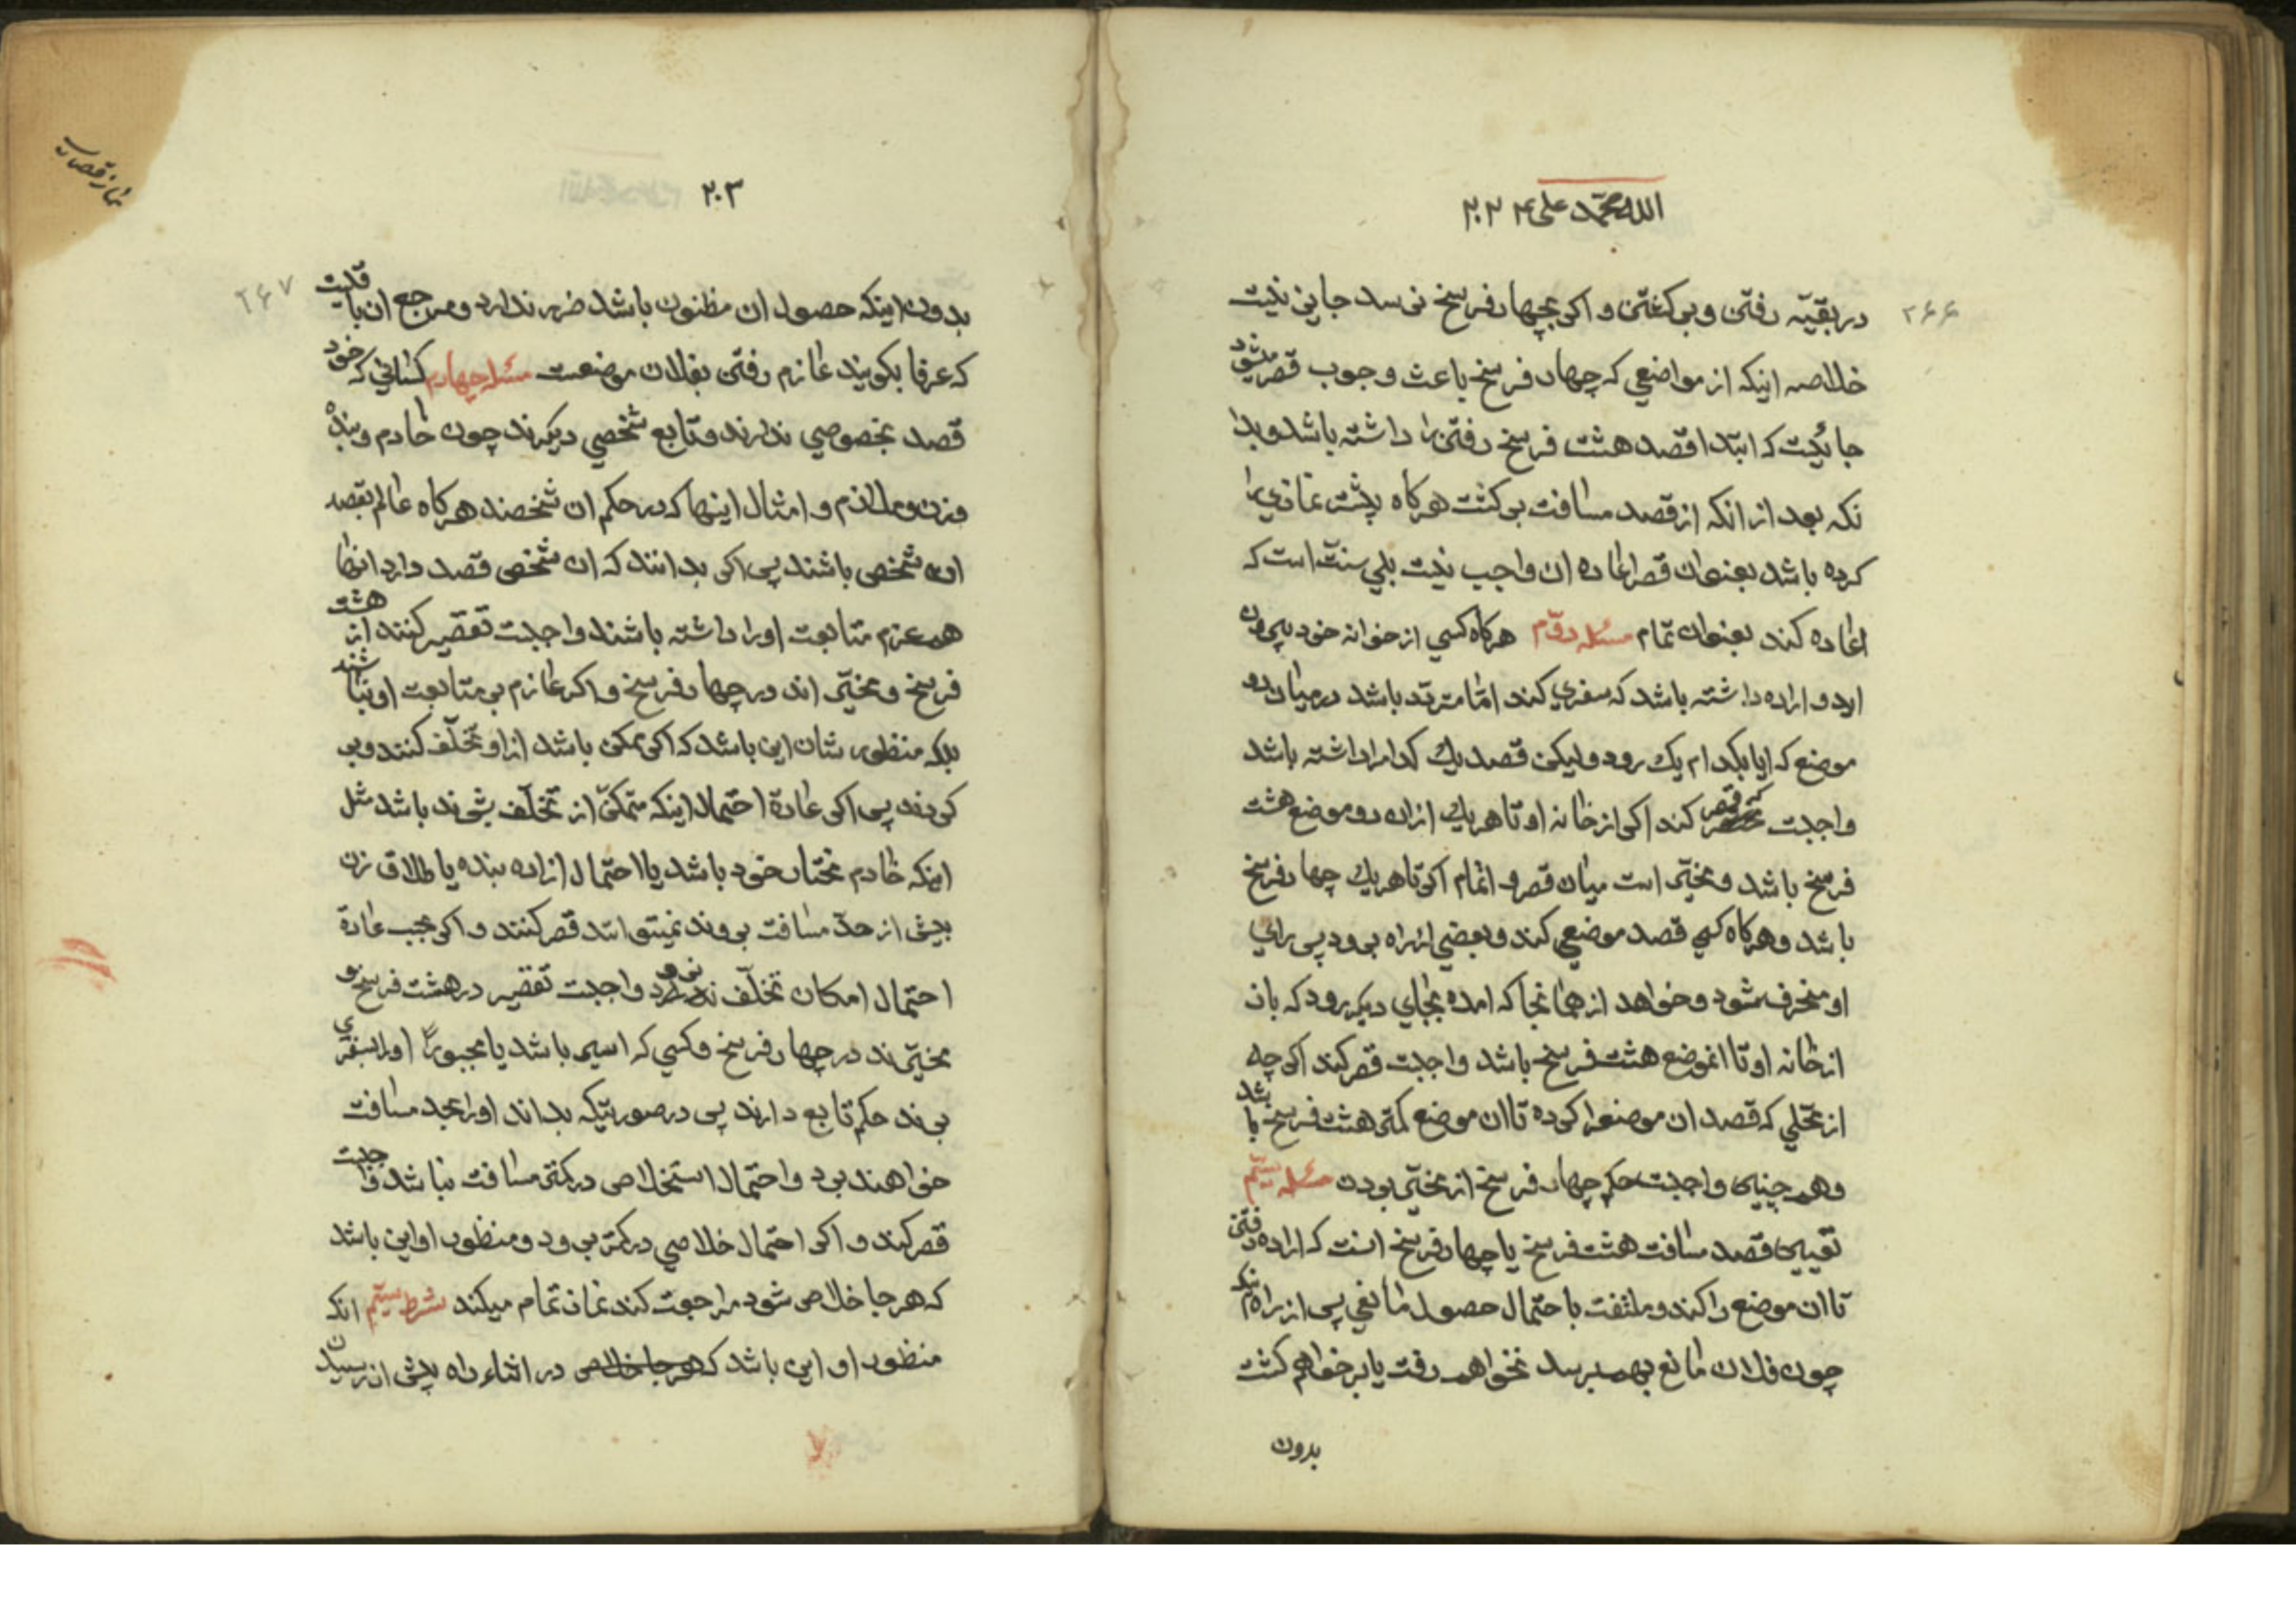 الله محمد علی ۲۰۲۴
۲۶۶
در بقیّه رفتن و برگشتن و اگر بچهار فرسخ نرسد جایز نیست
خلاصه اینکه از مواضعی که چهار فرسخ باعث وجوب قصر میشود
جائیست که ابتدا قصد هشت فرسخ رفتن را داشته باشد و بدا
نکه بعد از انکه از قصد مسافت برگشت هرگاه پیشتر نمازی را
کرده باشد بعنوان قصر اعاده ان واجب نیست بلی سنت است که
اعاده کند بعنوان تمام مسئله دوّم هرگاه کسی از خوانه خود بیرون
اید و اراده داشته باشد که سفری کند امّا متردّد باشد در میان دو
موضع که ایا بکدام یک رود ولیکن قصد یک کدام را داشته باشد
واجبست که قصر کند اگر از خانه او تا هر یک ازان دو موضع هشت
فرسخ باشد و مخیّر است میان قصر و اتمام اگر تا هر یک چهار فرسخ
باشد و هرگاه کسی قصد موضعی کند و بعضی از راه برود پس رای
او منحرف شود و خواهد از همانجا که امده بجای دیگر رود که بان
از خانه او تا انموضع هشت فرسخ باشد واجبست قصر کند اگر چه
از محلی که قصد ان موضع را کرده تا ان موضع کمتر هشت فرسخ باشد
و همچنین واجبست حکم چهار فرسخ از مخیّر بودن مسئله سیّم
تعیین قصد مسافت هشت فرسخ یا چهار فرسخ انست که اراده رفتن
تا ان موضع را کند و ملتفت باحتمال حصول مانعی پس از راه انکه
چون فلان مانع بهمرسد نخواهم رفت یا برخواهم گشت
بدون
۲۰۳
نماز قصران
۲۶۷
بدون اینکه حصول ان مظنون باشد ضرر ندارد و مرجع ان باقلیت
که عرفا بگویند عازم رفتن بفلان موضعست مسئله چهارم کسانی که خود
قصد بخصوصی ندارند و تابع شخصی دیگرند چون خادم و بنده
و زن و ملازم و امثال اینها که در حکم ان شخصند هرگاه عالم بقصد
ان شخص باشند پس اگر بدانند که ان شخص قصد دارد انها
هم عزم متابعت او را داشته باشند واجبست تقصیر کنند از هشت
فرسخ و مخیّر اند در چهار فرسخ و اگر عازم بر متابعت او نباشند
بلکه منظور شان این باشد که اگر ممکن باشد از او تخلّف کنند و بر
گردند پس اگر عادة احتمال اینکه متمکّن از تخلّف بشوند باشد مثل
اینکه خادم مختار خود باشد یا احتمال ازاده بنده یا طلاق زن
بیش از حدّ مسافت بروند نمیتوانند قصر کنند و اگر بحسب عادة
احتمال امکان تخلّف نرود واجبست تقصیر در هشت فرسخ و
مخیّرند در چهار فرسخ و کسی که اسیر باشد یا مجبوراً او را بسفری
برند حکم تابع دارند پس در صورتیکه بداند او را بحد مسافت
خواهند برد و احتمال استخلاص در کمتر مسافت نباشد واجبست
قصر کند و اگر احتمال خلاصی در کمتر برود و منظور او این باشد
که هر جا خلاص شود مراجعت کند نماز تمام میکند شرط سیّم انکه
منظور او این باشد که هر جا خلاص در اثناء راه پیش از رسیدن